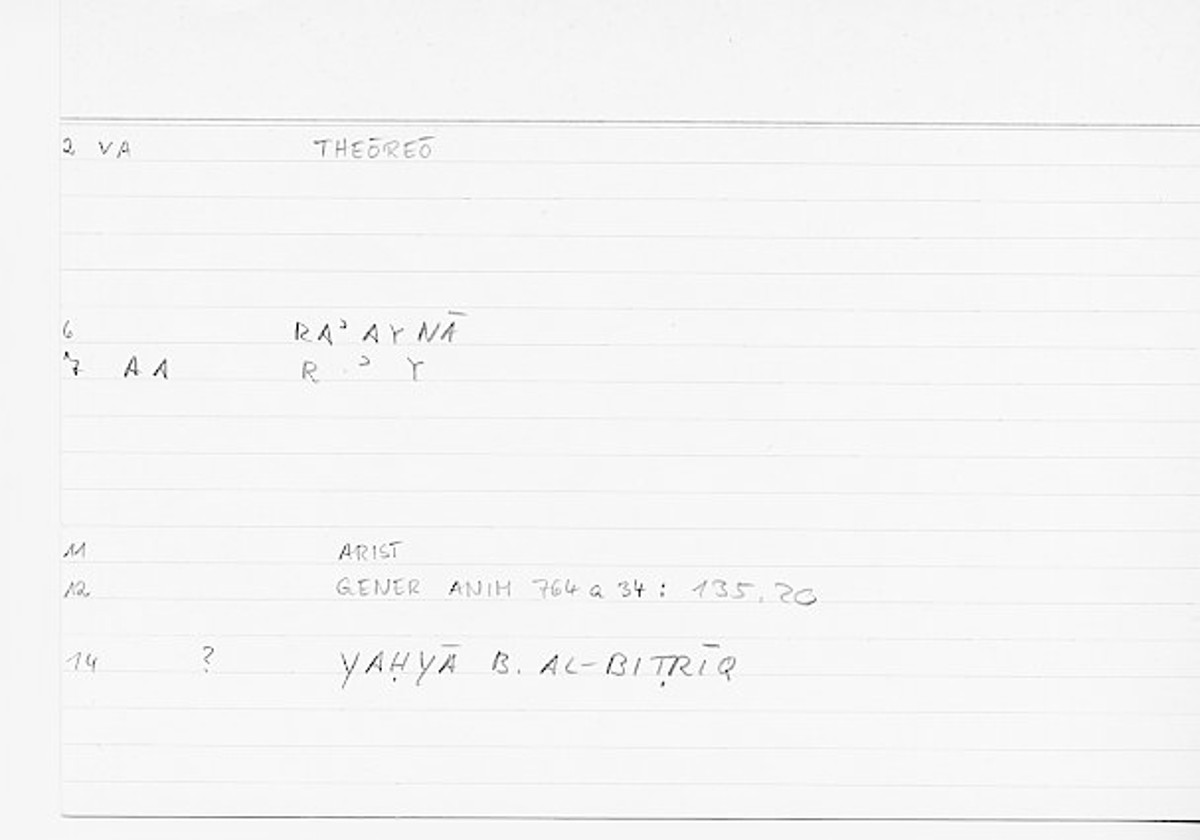 2 VA THEŌREŌ
6 RAʾAYNĀ
7 AA R . ʾ Y
11 ARIST
12 GENER ANIM 764 a 34 : 135.20
14 ? YAḤYĀ B. AL-BIṬRĪQ